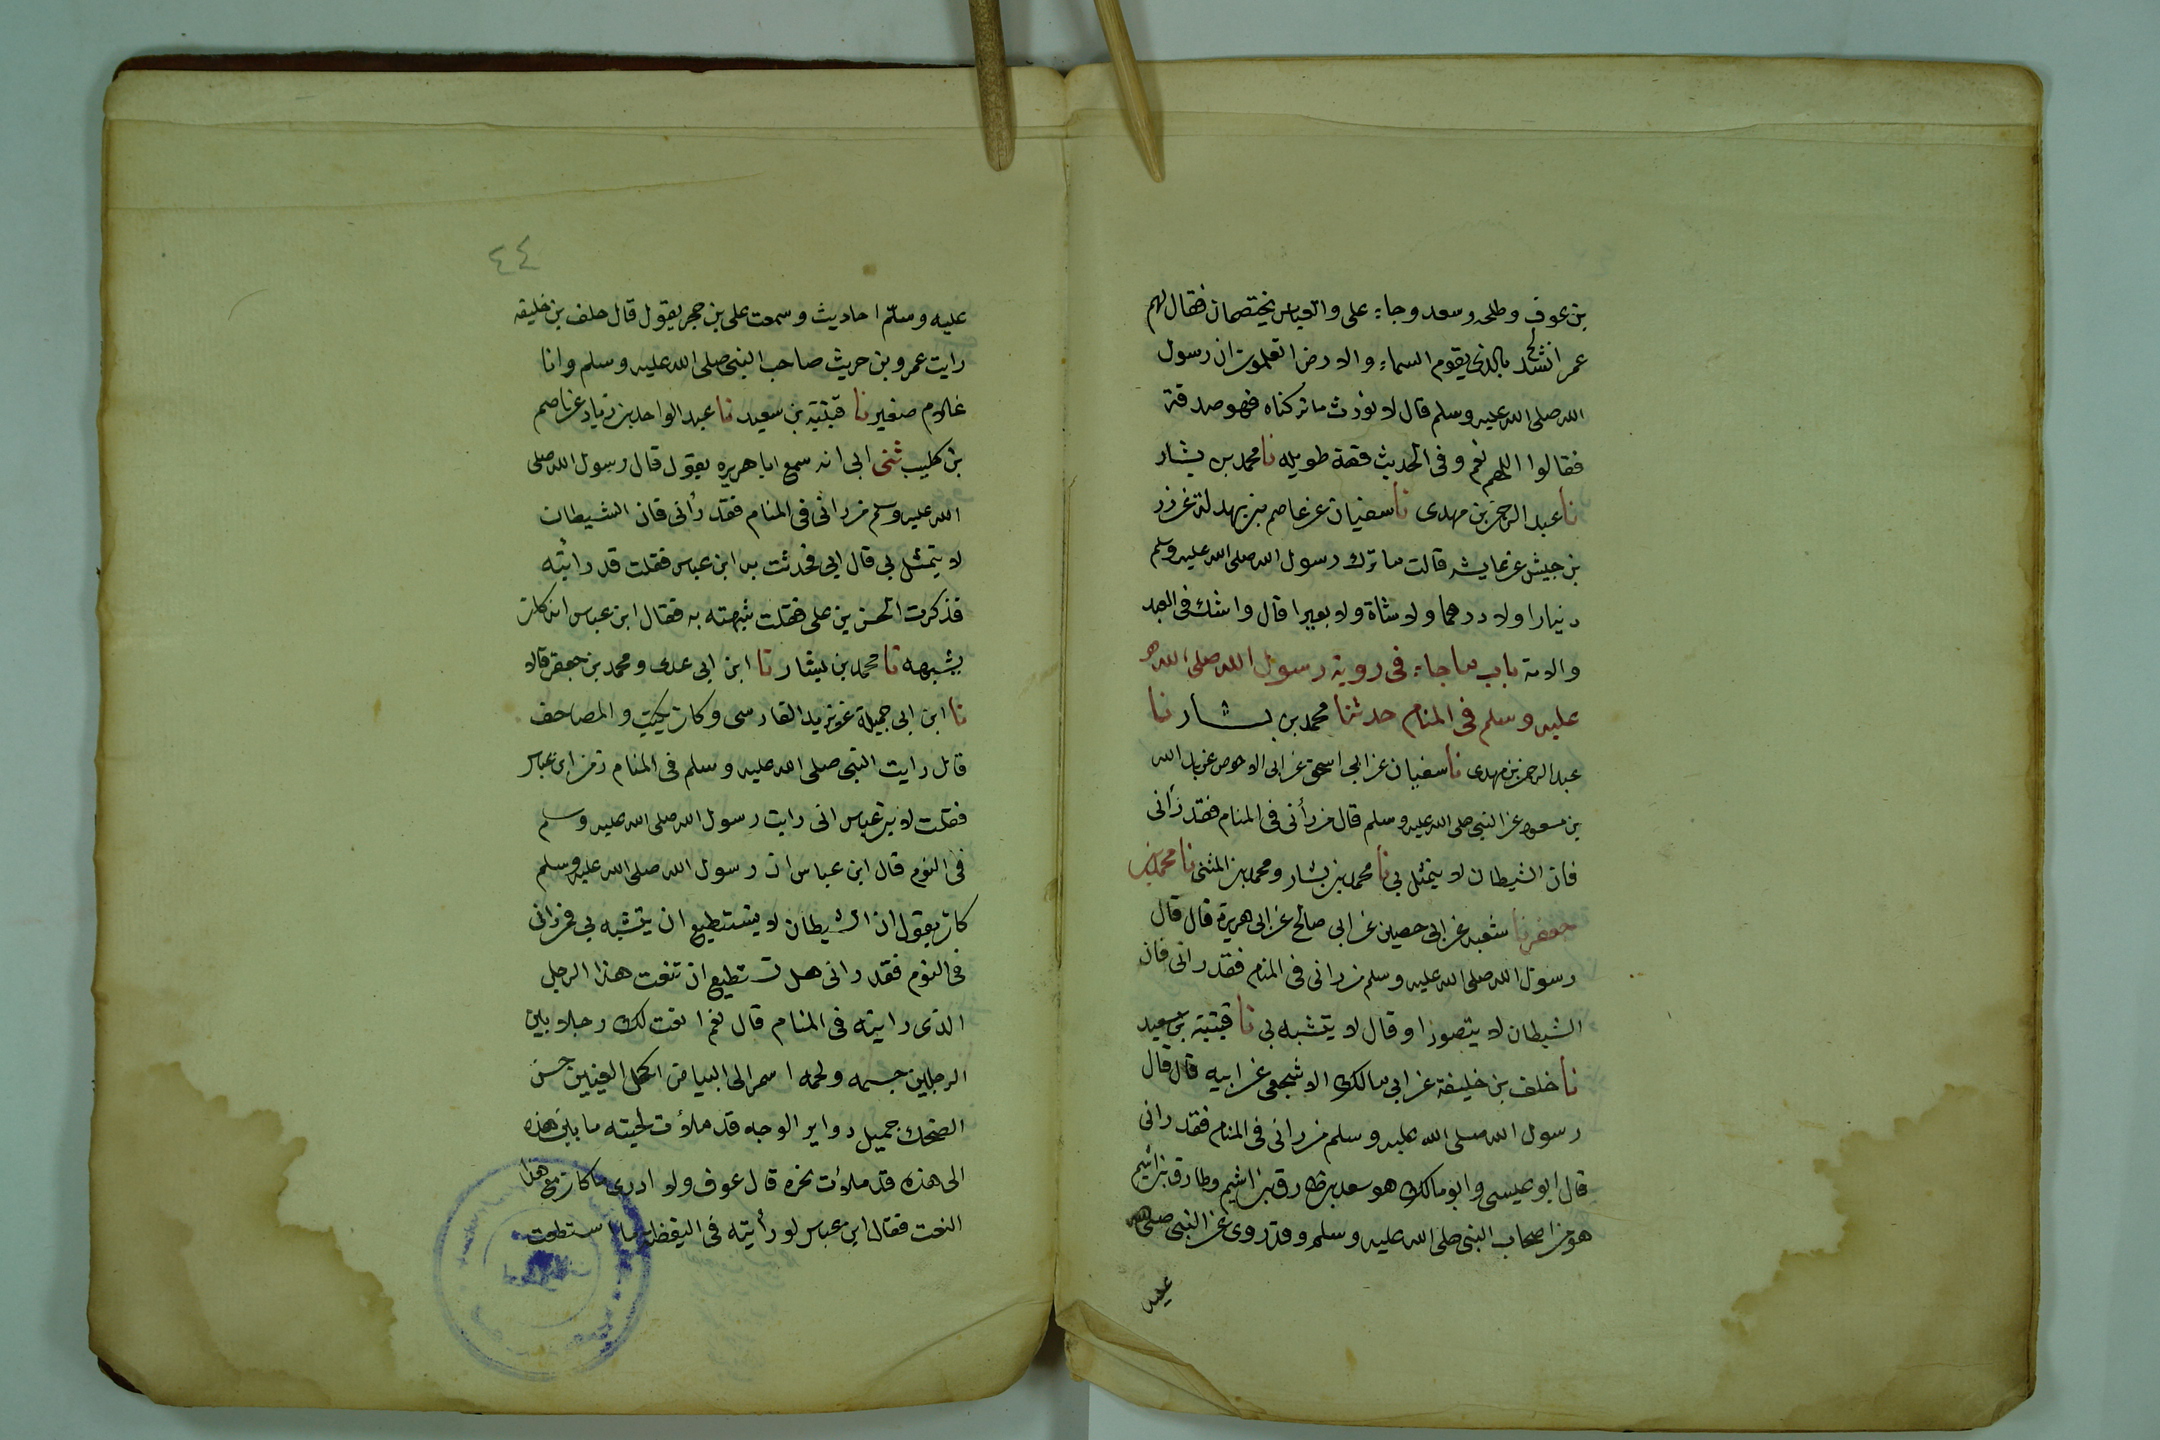 بن عوف وطلحه وسعد وجاء على والعباس يختصمان فقال لهم
عمر انشدكم بالذى يقوم السماء والارض اتعلمون ان رسول
الله صلى الله عليه وسلم قال لا نورث ما تركناه فهو صدقة
فقالوا اللهم نعم وفى الحديث قصة طويله نا محمد بن بشار
نا عبد الرحمن بن مهدى نا سفيان عن عاصم بن بهدلة عن زر
بن حبيش عن عايشه قالت ما ترك رسول الله صلى الله عليه وسلم
دينارا ولا درهما ولا شاة ولا بعيرا قال واشك فى العبد
والامة باب ما جاء فى روية رسول الله صلى الله
عليه وسلم فى المنام حدثنا محمد بن بشار نا
عبد الرحمن بن مهدى نا سفيان عن ابى اسحق عن ابى الاحوص عن عبد الله
بن مسعود عن النبى صلى الله عليه وسلم قال من رأنى فى المنام فقد رأنى
فان الشيطان لا يتمثل بى نا محمد بن بشار ومحمد بن المثنى نا محمد بن
جعفر نا شعبه عن ابى حصين عن ابى صالح عن ابى هريرة قال قال
رسول الله صلى الله عليه وسلم من رانى فى المنام فقد رانى فان
الشيطان لا يتصور او قال لا يتشبه بى نا قتيبة بن سعيد
نا خلف بن خليفة عن ابى مالك الاشجعى عن ابيه قال قال
رسول الله صلى الله عليه وسلم من رانى فى المنام فقد رانى
قال ابو عيسى وابو مالك هو سعد بن طارق بن اشيم وطارق بن اشيم
هو من اصحاب النبى صلى الله عليه وسلم وقد روى عن النبى صلى الله
عليه
٤٤
عليه وسلم احاديث وسمعت على بن حجر يقول قال خلف بن خليفه
رايت عمرو بن حريث صاحب النبى صلى الله عليه وسلم وانا
غلام صغير نا قتيبة بن سعيد نا عبد الواحد بن زياد عن عاصم
بن كليب ثنى ابى انه سمع ابا هريره يقول قال رسول الله صلى
الله عليه وسلم من رانى فى المنام فقد رأنى فان الشيطان
لا يتمثل بى قال ابى فحدثت به ابن عباس فقلت قد رأيته
فذكرت الحسن بن على فقلت شبهته به فقال ابن عباس انه كان
يشبهه نا محمد بن بشار نا ابن ابى عدى ومحمد بن جعفر قالا
نا ابن ابى جميلة عن يزيد الفارسى وكان يكتب المصاحف
قال رايت النبى صلى الله عليه وسلم فى المنام زمن ابن عباس
فقلت لابن عباس انى رايت رسول الله صلى الله عليه وسلم
فى النوم قال ابن عباس ان رسول الله صلى الله عليه وسلم
كان يقول ان الشيطان لا يستطيع ان يتشبه بى فمن رانى
فى النوم فقد رانى هل تستطيع ان تنعت هذا الرجل
الذى رايته فى المنام قال نعم انعت لك رجلا بين
الرجلين جسمه ولحمه اسمر الى البياض اكحل العينين حسن
الضحك جميل دواير الوجه قد ملأت لحيته ما بين هذه
الى هذه قد ملأت نحره قال عوف ولا ادرى ما كان مع هذا
النعت فقال ابن عباس لو رأيته فى اليقظة ما استطعت